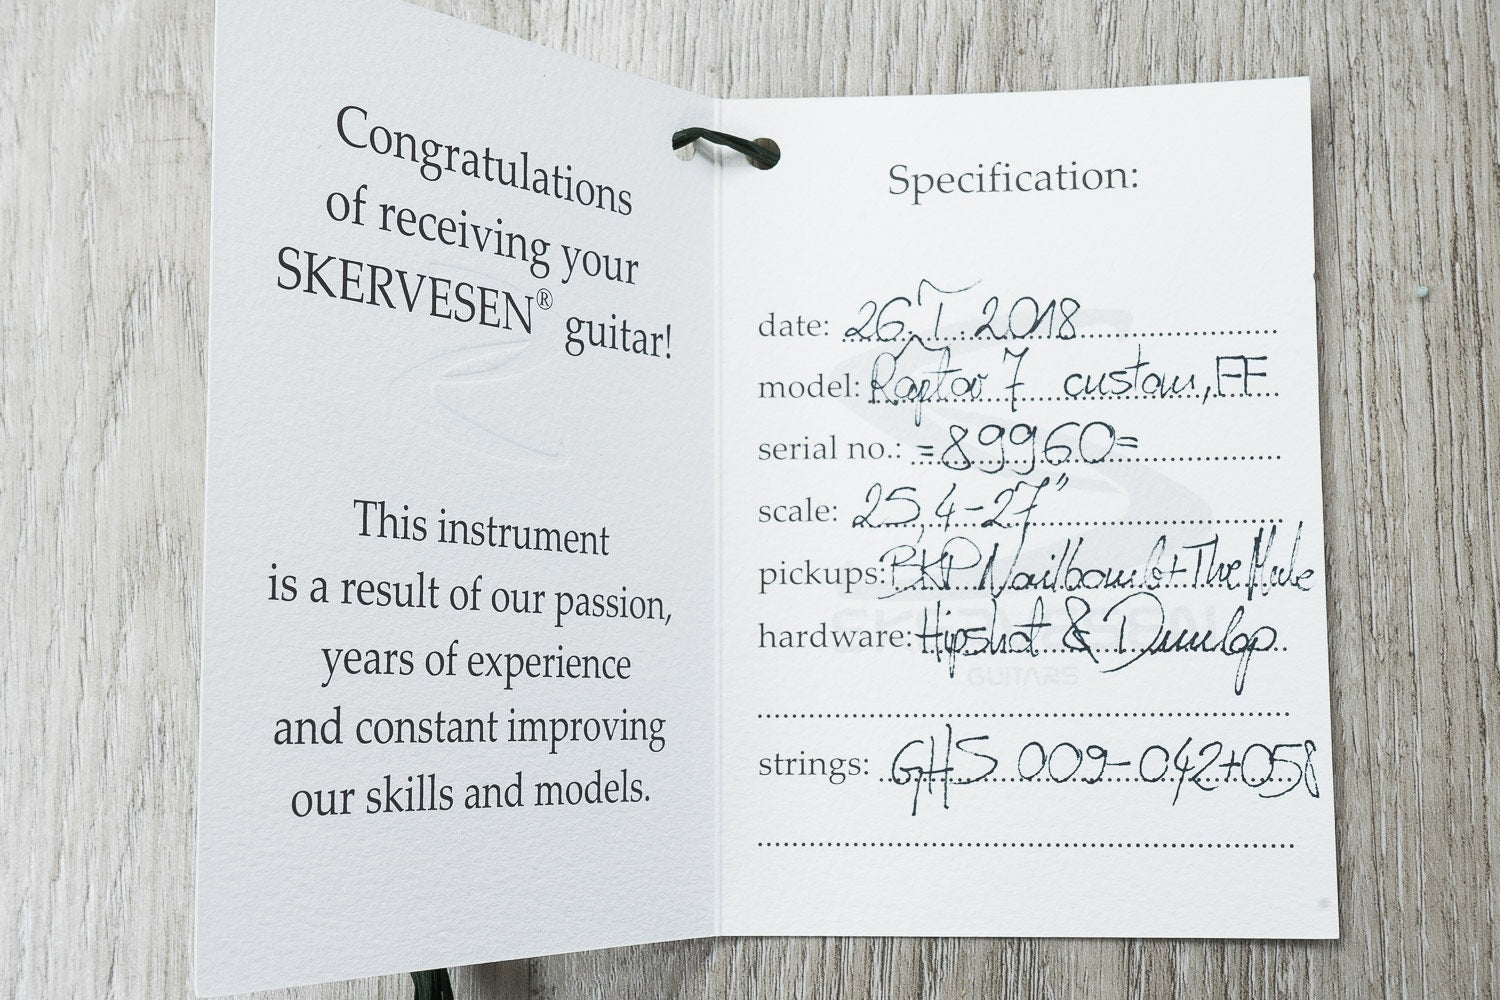 Congratulations
of receiving your
SKERVESEN® guitar!
This instrument
is a result of our passion,
years of experience
and constant improving
our skills and models.
Specification:
date: 26.I.2018
model: Raptor 7 custom, FF
serial no.: =89960=
scale: 25,4-27"
pickups: BKP Nailbomb + The Mule
hardware: Hipshot & Dunlop
strings: GHS 009-042+058
SKERVESEN
GUITARS